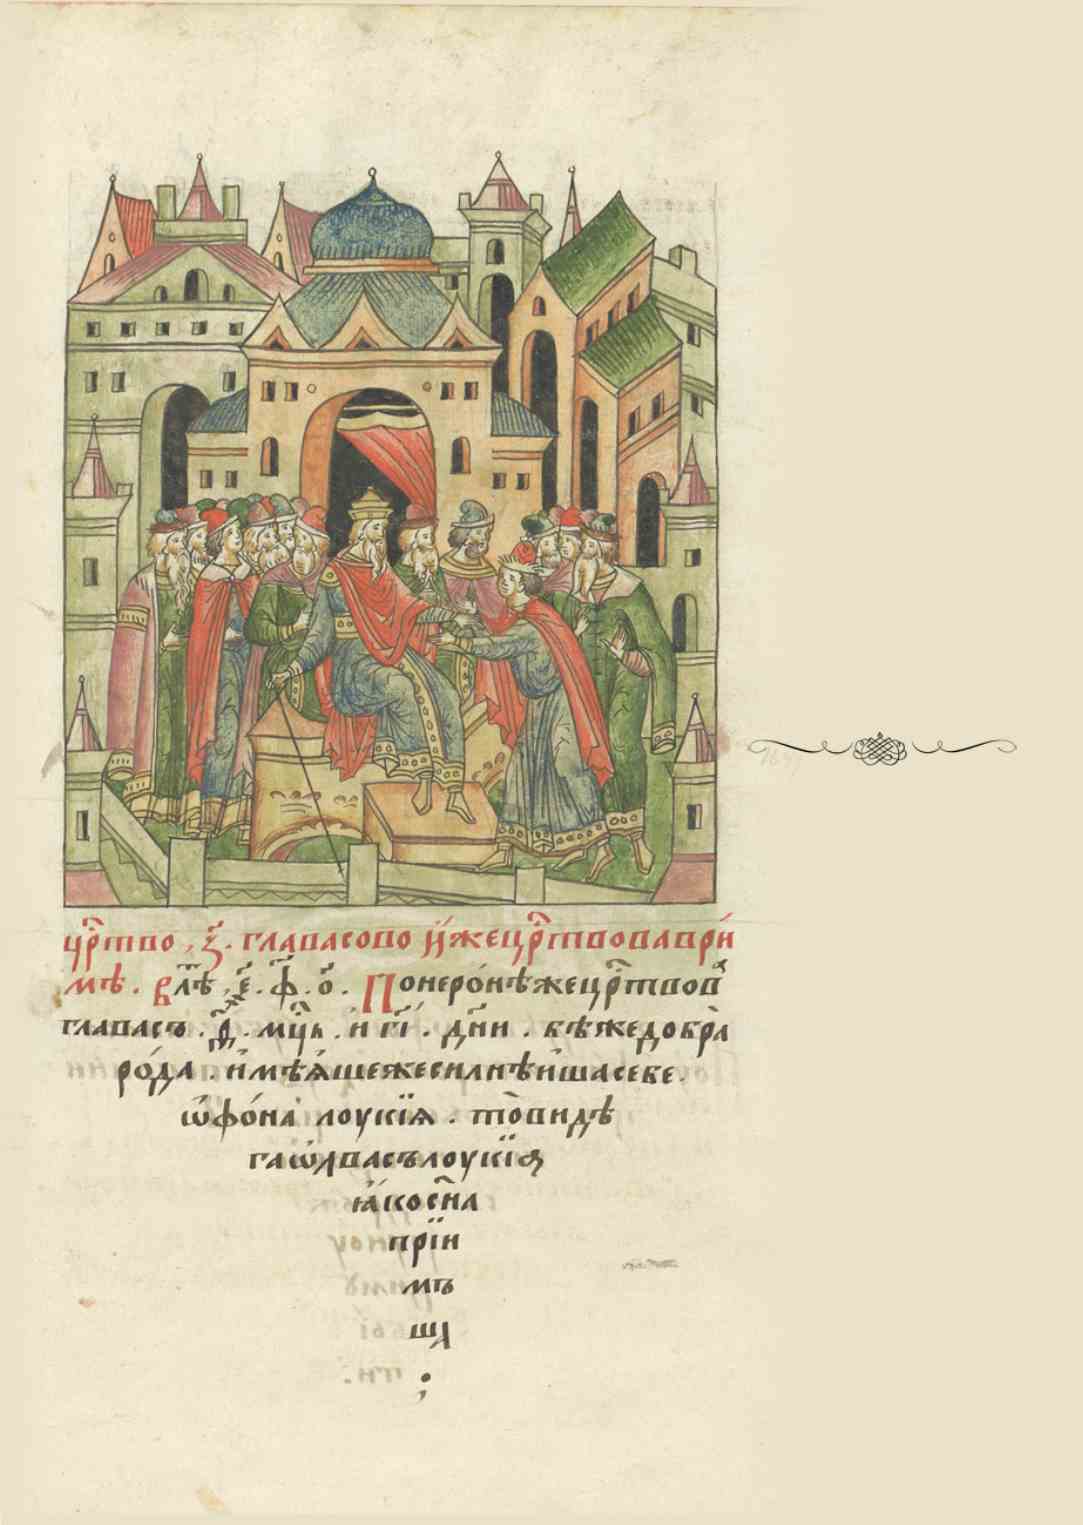 црⷭ҇тво , з҃ . главасово и҆́жецрⷭ҇твоваври́
мѣ . влⷮѣ , є҃ . ф҃ . о҃ . Понеро́нѣжецрⷭ҇твова
главасъ . д҃ . мцⷭ҇ь . и҆ гі҃ . дн҃и . бѣжедобра̀
ро́да . и҆мѣѧ́шежесилнѣи҆шасебе .
ѿфо́на лоукі́ѧ . то̀видѣ
гаѿдвасълоукі́ѧ
ꙗ҆́косн҃а
прїи
мъ
шд
;